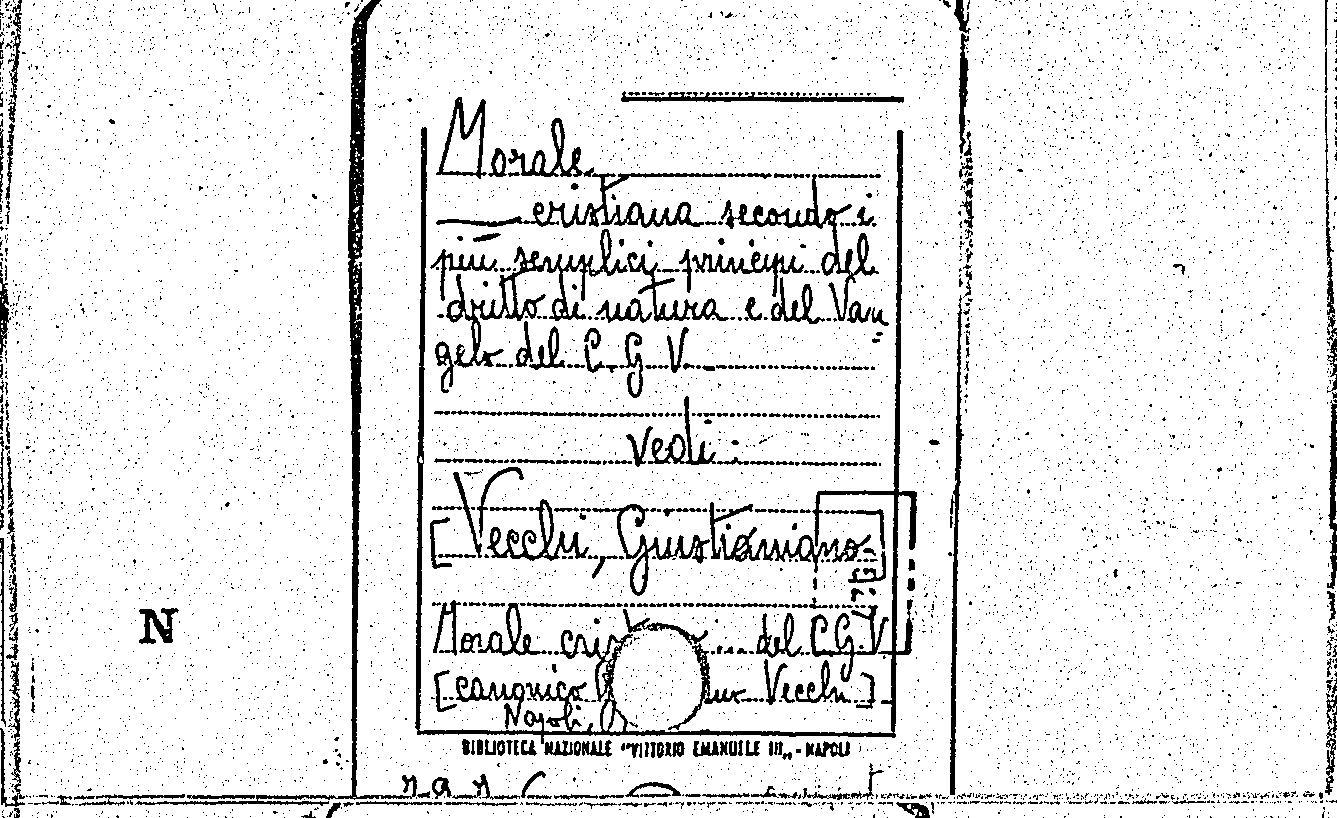 Morale
cristiana secondo i
più semplici principi del
dritto di natura e del Van=
gelo del C. G. V.
vedi:
[Vecchi, Giustiniano]
Morale cris ... del C. G. V.
[canonico Vecchi]
Napoli,
BIBLIOTECA NAZIONALE "VITTORIO EMANUELE III" - NAPOLI
N